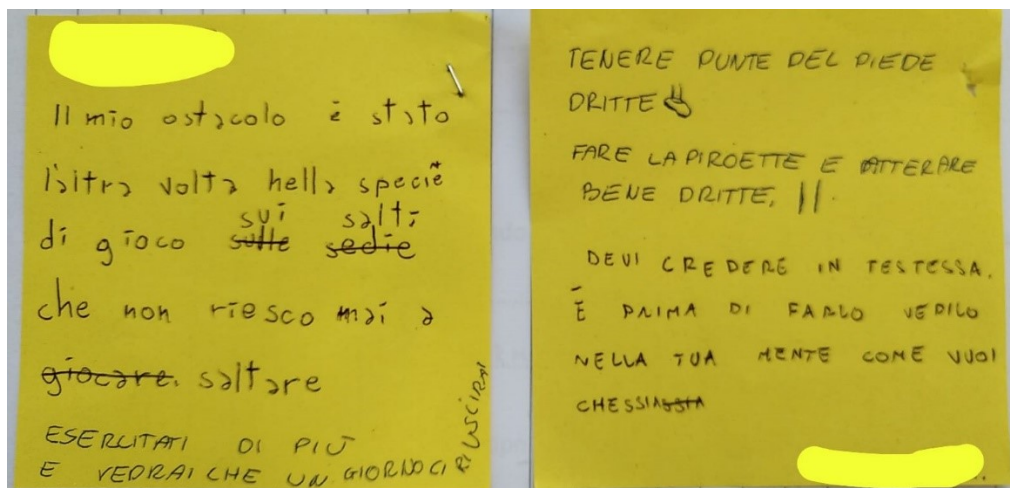 Il mio ostacolo è stato
l'altra volta nella specie
di gioco sulle sedie
sui salti
che non riesco mai a
giocare. saltare
ESERCITATI DI PIÙ
E VEDRAI CHE UN GIORNO CI RIUSCIRAI
TENERE PUNTE DEL PIEDE
DRITTE
FARE LA PIROETTE E ATTERARE
BENE DRITTE.
DEVI CREDERE IN TESTESSA.
E PRIMA DI FARLO VEDILO
NELLA TUA MENTE COME VUOI
CHESSIA